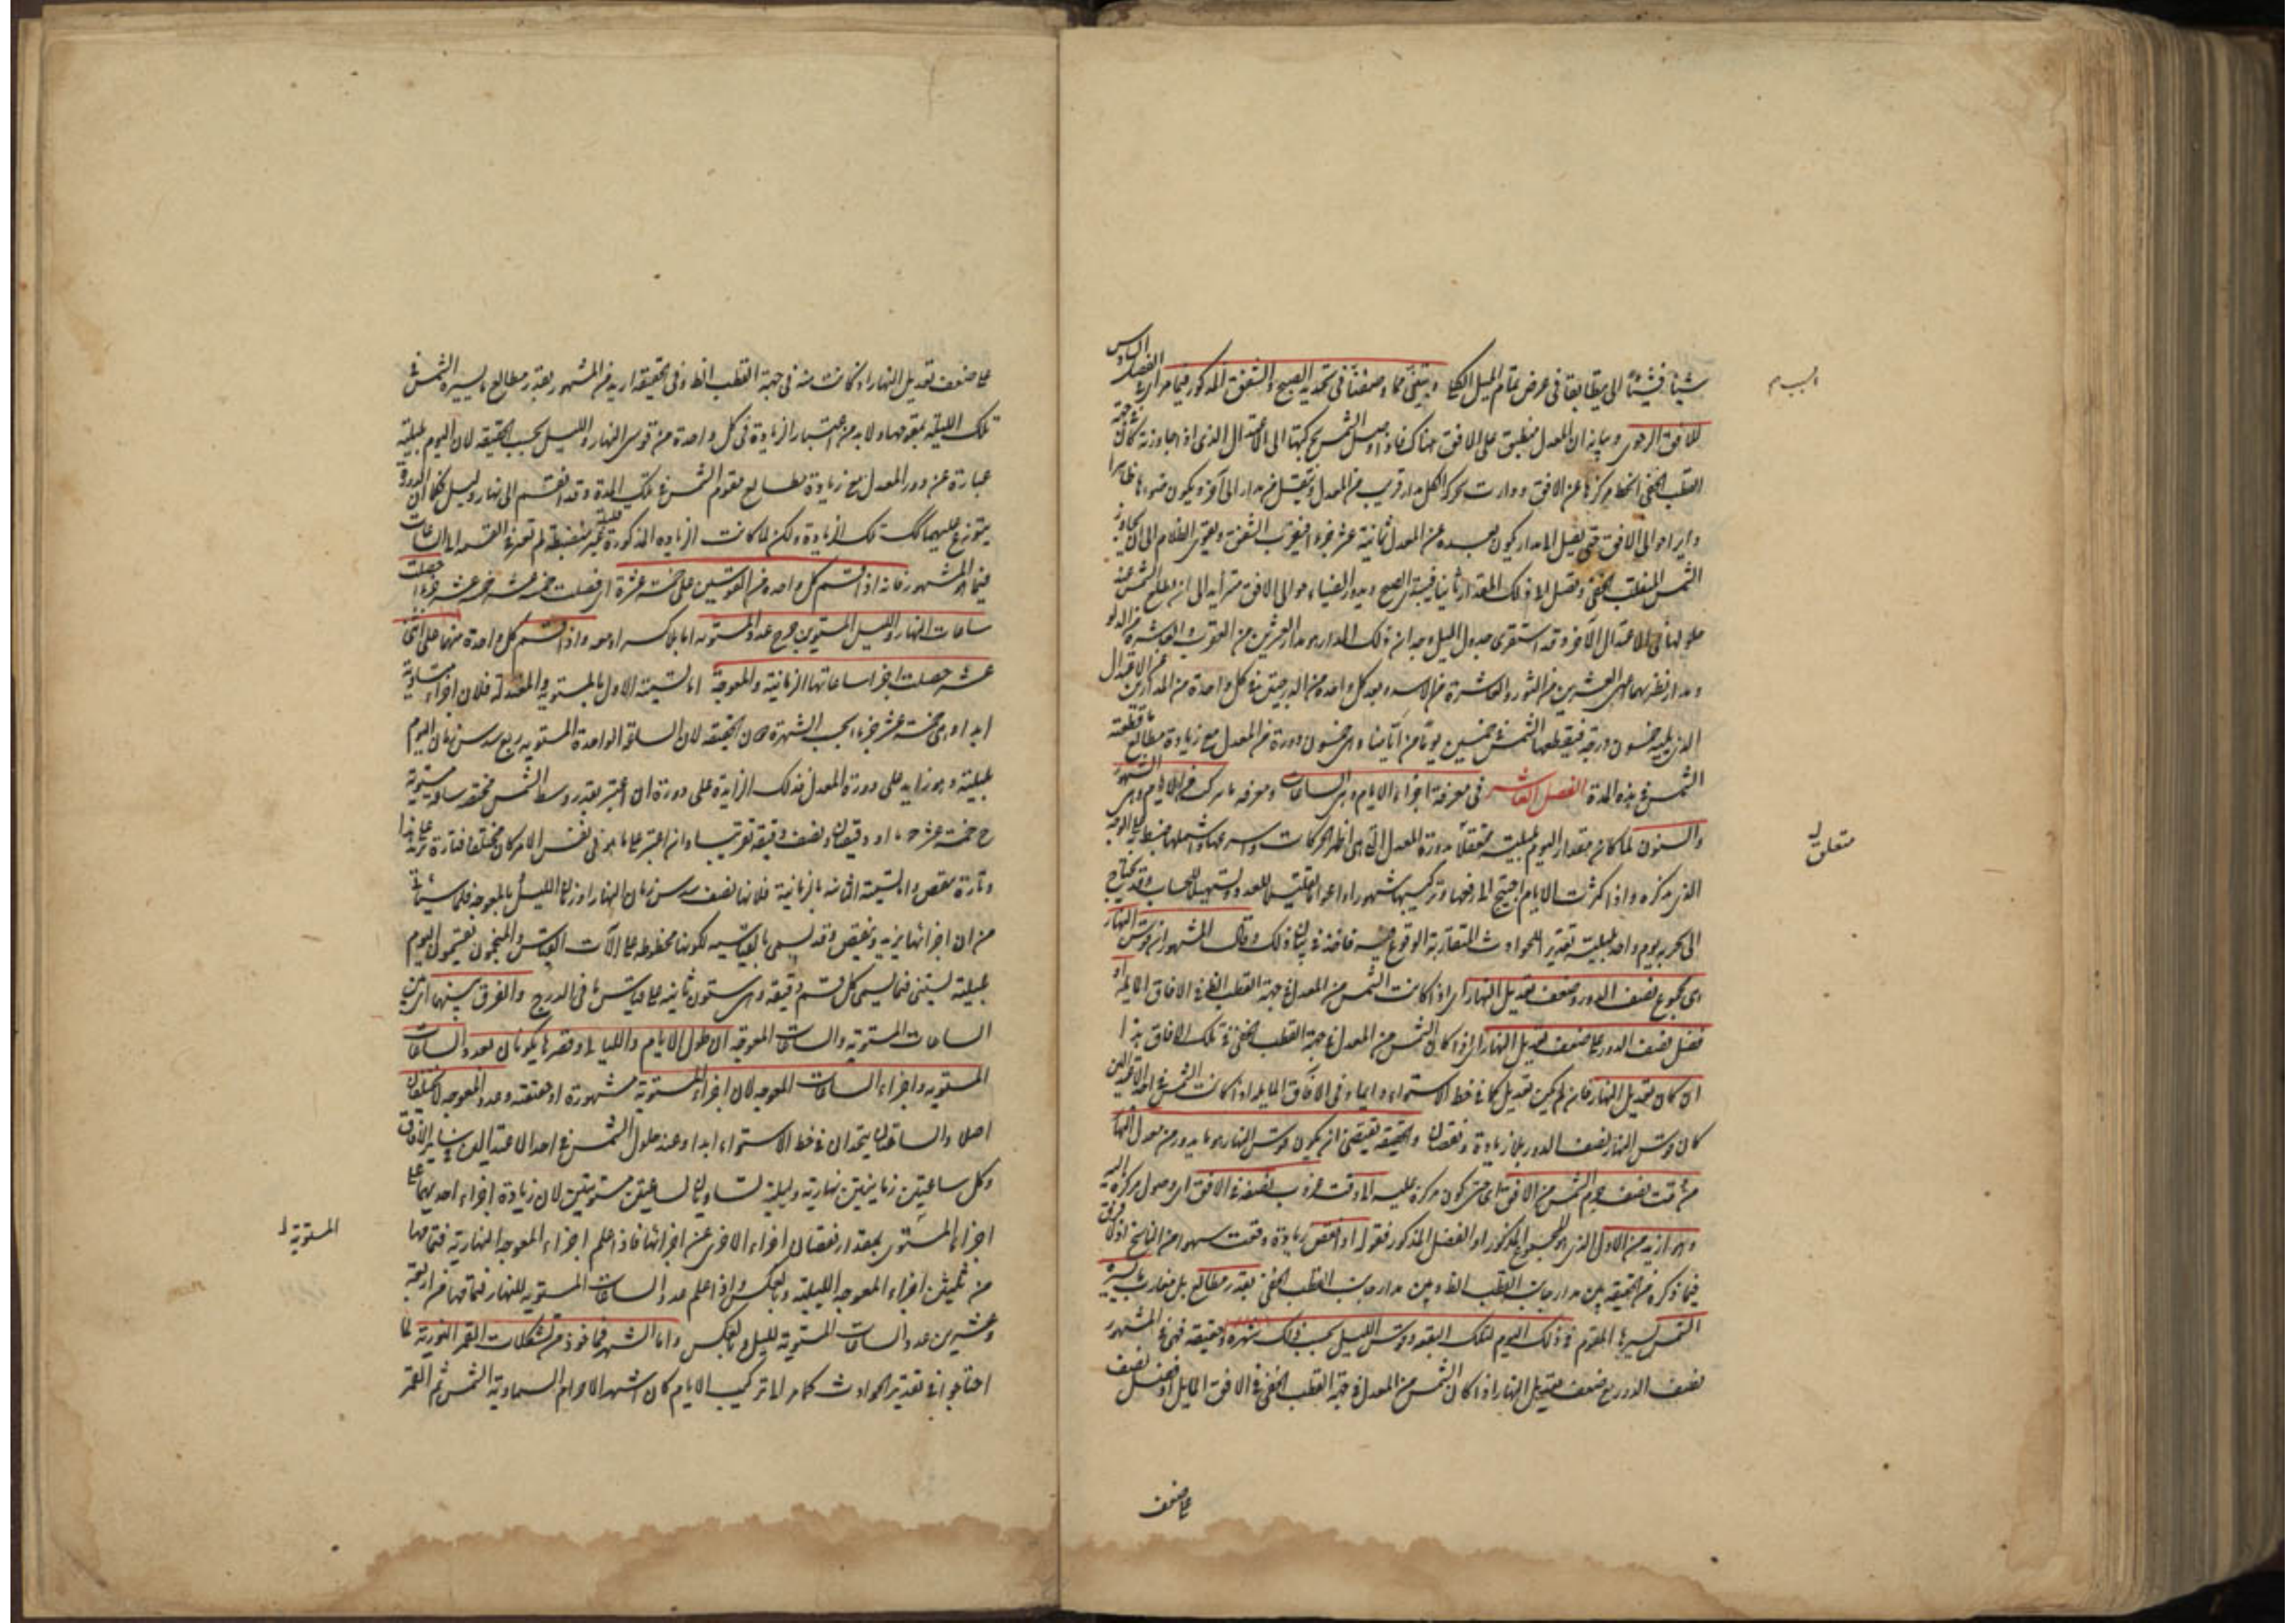 شيئا فشيئا الى ان يتطابقا في عرض تمام الميل الكلي ويتبين مما وصفنا في تحديد الصبح والشفق المذكور فيما مر
للافق الرحوي وبيانه ان المعدل منطبق على الافق هناك فاذا وصل الشمس بحركتها الى الاعتدال الذي اذا جاوزته كان
القطب الخفي انحط مركزها عن الافق ودارت بحركة الكل مدار قريب من المعدل وتنتقل من مدار الى آخر ويكون ضوءها ظاهرا
دايرا حوالي الافق حتى يصل الى مدار يكون بعده عن المعدل ثمانية عشر جزءا فيغرب الشفق ويبقى الظلام الى ان يجاوز
الشمس المنقلب الخفي ويصل الى ذلك المقدار ثانيا فيبتدئ الصبح ويدور الضياء حوالي الافق متزايدا الى ان يطلع الشمس عند
حلولها في الاعتدال الآخر وقد استقرى جدول الميل فوجد ان ذلك المدار هو مدار العشرين من العقرب والعاشرة من الدلو
ومدار نظيرهما اعني العشرين من الثور والعاشرة من الاسد وبعد كل واحدة من الدرجتين في كل واحدة من المدارين عن الاعتدال
الذي يليه خمسون درجة فيقطعها الشمس في خمسين يوما من ايامنا وهي خمسون دورة من المعدل مع زيادة مطالع ما قطعته
الشمس في هذه المدة الفصل العاشر في معرفة اجزاء الايام وهي الساعات ومعرفة ما يتركب من الايام وهي الشهور
والسنون لما كان مقدار اليوم بليلته محققا بدورة المعدل التي هي اظهر الحركات واسرعها واشملها
الذي يذكره واذا كثرت الايام احتيج الى رفعها وتركيبها شهورا واعواما تقليلا للعدد وتسهيلا للحساب وقد يحتاج
الى تجزية يوم واحد بليلته لتقدير الحوادث المتقاربة الوقوع فيه فاخذ في بيان ذلك وقال المشهور ان قوس النهار
هي مجموع نصف الدور وضعف تعديل النهار اي اذا كانت الشمس من المعدل في جهة القطب الظ في الافاق المايلة او
فضل نصف الدور على ضعف تعديل النهار اي اذا كان الشمس من المعدل في جهة القطب الخفي في تلك الافاق هذا
ان كان تعديل النهار فان لم يكن تعديل كما في خط الاستواء دايما وفي الافاق المايلة اذا كانت الشمس في احد الاعتدالين
كان قوس النهار نصف الدور بلا زيادة ونقصان والحقيقة تقتضي ان يكون قوس النهار هو ما يدور من معدل النهار
من وقت نصف جرم الشمس من الافق اي حين يكون مركزه عليه الى وقت غروب نصفه في الافق اي وصول مركزه اليه
وهو ازيد من الاول الذي هو المجموع المذكور او الفضل المذكور فقوله او انقص زيادة وقعت سهوا من الناسخ اذ لا فرق
فيما ذكره من الحقيقة بين مدار جانب القطب الظ وبين مدار جانب القطب الخفي بقدر مطالع بل مغارب ما يسيره
الشمس بسيرها المقوم في ذلك اليوم لتلك البقعة وقوس الليل بحسب ذلك شهرة وحقيقة فهي في المشهور
نصف الدور مع ضعف تعديل النهار اذا كان الشمس من المعدل في جهة القطب الخفي في الافق المايل او فضل نصف
على ضعف
متعلق
على ضعف تعديل النهار اذ كانت منه في جهة القطب الظ وفي الحقيقة ازيد من المشهور بقدر مطالع ما يسيره الشمس في
تلك الليلة بمقومها ولا بد من اعتبار الزيادة في كل واحدة من قوس النهار والليل بحسب الحقيقة لان اليوم بليلته
عبارة عن دور المعدل مع زيادة مطالع مقوم الشمس في تلك المدة وقد انقسم الى نهار وليل فكما ان الدورة
يتوزع عليهما كك تلك الزيادة ولكن لما كانت الزيادة المذكورة غير منضبطة لم تعتبر في القسمة اما الساعات
فيما هو المشهور فانه اذا قسم كل واحد من القوسين على خمسة عشرة اي فصلت خمسة عشر خمسة عشر جزءا حصلت
ساعات النهار والليل المستويين عدد المستوية اما بلا كسر او معه واذا قسم كل واحدة منهما على اثنى
عشر حصلت اجزا ساعاتها الزمانية والمعوجة اما تسمية الاول بالمستوية والمعتدلة فلان اجزاءها متساوية
ابدا وهي خمسة عشر جزءا بحسب الشهرة دون الحقيقة لان الساعة الواحدة المستوية ربع سدس زمان اليوم
بليلته وهو زايد على دورة المعدل فذلك الزايد على دورة ان اعتبر بقدر وسط الشمس فحصته ساعة مستوية
ح خمسة عشر جزءا ودقيقتان ونصف دقيقة تقريبا وان اعتبر على ما هو في نفس الامر كان مختلفا فتارة تزيد على هذا
وتارة ينقص واما تسمية الثانية بالزمانية فلانها نصف سدس زمان النهار او زمان الليل وبالمعوجة فلما سيأتي
من ان اجزائها يزيد وينقص وقد يسمى بالقياسية لكونها مخطوطة على الآت القياس والمنجمون يقسمون اليوم
بليلته بستين قسما يسمى كل قسم دقيقة وهي ستون ثانية على قياس ما في الدرج والفرق بينهما اي بين
الساعات المستوية والساعات المعوجة ان طول الايام والليالي وقصرها يكونان بعدد الساعات
المستوية واجزاء الساعات المعوجة لان اجزاء المستوية مشهورة او حقيقة وعدد المعوجة لا يختلفان
اصلا والساعتان يتحدان في خط الاستواء ابدا وعند حلول الشمس في احد الاعتدالين في ساير الافاق
وكل ساعتين زمانيتين نهارية وليلية تساويان لساعتين مستويتين لان زيادة اجزاء احديهما على
اجزاء المستوى بمقدار نقصان اجزاء الاخرى عن اجزائها فاذا علم اجزاء المعوجة النهارية فتمامها
من ثلثين اجزاء المعوجة الليلية وبالعكس واذا علم عدد الساعات المستوية للنهار فتمامها من اربعة
وعشرين عدد الساعات المستوية لليل وبالعكس واما الشهر فماخوذ من تشكلات القمر النورية لما
احتاجوا في تقدير الحوادث كما مر الى تركيب الايام كان اشهر الاجرام السماوية الشمس ثم القمر
المستوية